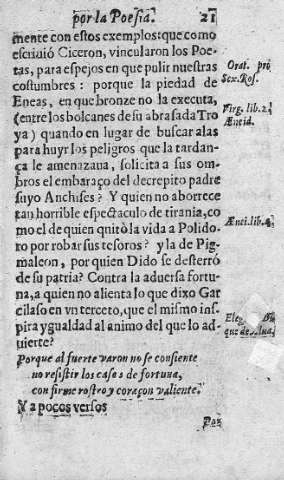 por la Poesia. 21
mente con estos exemplos: que como
escriuió Ciceron, vincularon los Poe-
tas, para espejos en que pulir nuestras
costumbres: porque la piedad de
Eneas, en que bronze no la executa,
(entre los bolcanes de su abrasada Tro
ya) quando en lugar de buscar alas
para huyr los peligros que la tardan-
ça le amenazaua, solicita a sus om-
bros el embaraço del decrepito padre
suyo Anchises? Y quien no aborrece
tan horrible espectaculo de tirania, co
mo el de quien quitò la vida a Polido-
ro por robar sus tesoros? y la de Pig-
maleon, por quien Dido se desterró
de su patria? Contra la aduersa fortu-
na, a quien no alienta lo que dixo Gar
cilaso en vn terceto, que el mismo ins-
pira ygualdad al animo del que lo ad-
uierte?
Porque al fuerte varon no se consiente
no resistir los casos de fortuna,
con firme rostro y coraçon valiente.
Y a pocos versos
Poz
Orat. pro
Sex. Ros.
Virg. lib. 2.
Æneid.
Æneid. lib. 3.
Eleg.
que de Alua.